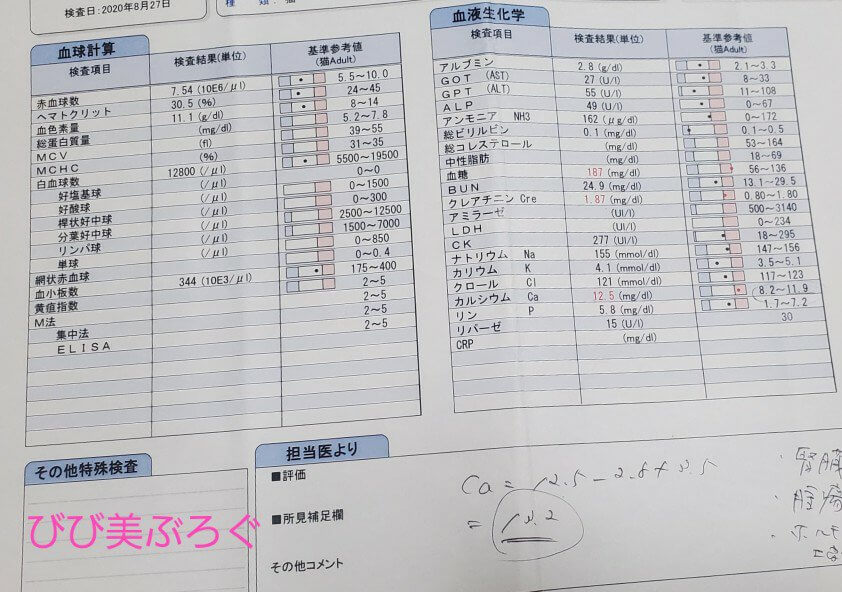 検査日:2020年8月27日
種 類:猫
血球計算
検査項目 検査結果(単位) 基準参考値(猫Adult)
赤血球数 7.54 (10E6/μl) 5.5~10.0
ヘマトクリット 30.5 (%) 24~45
血色素量 11.1 (g/dl) 8~14
総蛋白質量 (mg/dl) 5.2~7.8
MCV (fl) 39~55
MCHC (%) 31~35
白血球数 12800 (/μl) 5500~19500
好塩基球 (/μl) 0~0
好酸球 (/μl) 0~1500
桿状好中球 (/μl) 0~300
分葉好中球 (/μl) 2500~12500
リンパ球 (/μl) 1500~7000
単球 (/μl) 0~850
網状赤血球 0~0.4
血小板数 344 (10E3/μl) 175~400
黄疸指数 2~5
M法 2~5
集中法 2~5
ELISA 2~5
血液生化学
検査項目 検査結果(単位) 基準参考値(猫Adult)
アルブミン 2.8 (g/dl) 2.1~3.3
GOT (AST) 27 (U/l) 8~33
GPT (ALT) 55 (U/l) 11~108
ALP 49 (U/l) 0~67
アンモニア NH3 162 (μg/dl) 0~172
総ビリルビン 0.1 (mg/dl) 0.1~0.5
総コレステロール (mg/dl) 53~164
中性脂肪 (mg/dl) 18~69
血糖 187 (mg/dl) 56~136
BUN 24.9 (mg/dl) 13.1~29.5
クレアチニン Cre 1.87 (mg/dl) 0.80~1.80
アミラーゼ (UI/l) 500~3140
LDH (UI/l) 0~234
CK 277 (U/l) 18~295
ナトリウム Na 155 (mmol/dl) 147~156
カリウム K 4.1 (mmol/dl) 3.5~5.1
クロール Cl 121 (mmol/dl) 117~123
カルシウム Ca 12.5 (mg/dl) 8.2~11.9
リン P 5.8 (mg/dl) 1.7~7.2
リパーゼ 15 (U/l) 30
CRP (mg/dl)
その他特殊検査
びび美ぶろぐ
担当医より
■評価
■所見補足欄
その他コメント
Ca = 12.5 - 2.8 + 3.5
= 13.2
・腎臓
・腫瘍